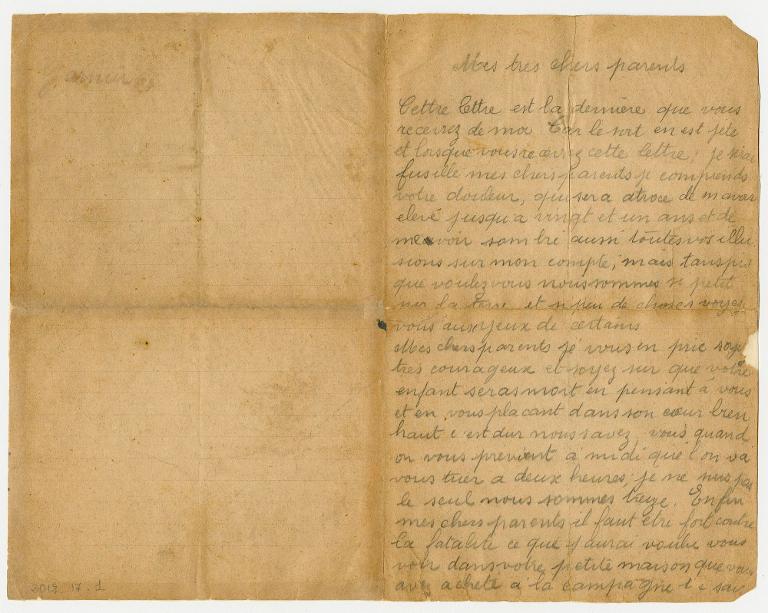 Garnier
Mes tres chers parents
Cettre lettre est la dernière que vous
recevrez de moi Car le sort en est jeté
et lorsque vous recevrez cette lettre, je serai
fusillé mes chers parents je comprends
votre douleur, qui sera atroce de m avoir
elevé jusqu'a vingt et un ans et de
me voir sombré aussi toutes vos illu
sions sur mon compte, mais tans pis
que voulez vous nous sommes si petit
sur la terre et si peu de choses voyez
vous aux yeux de certains
Mes chers parents je vous en prie soyez
très courageux et soyez sur que votre
enfant seras mort en pensant a vous
et en vous placant dans son cœur bien
haut c est dur vous savez, vous, quand
on vous previent a midi que l'on va
vous tuer a deux heures, je ne suis pas
le seul nous sommes treize. Enfin
mes chers parents il faut etre fort contre
la fatalité ce que j'aurai voulu vous
voir dans votre petite maison que vous
avez acheté a la campagne
2019. 17. 1